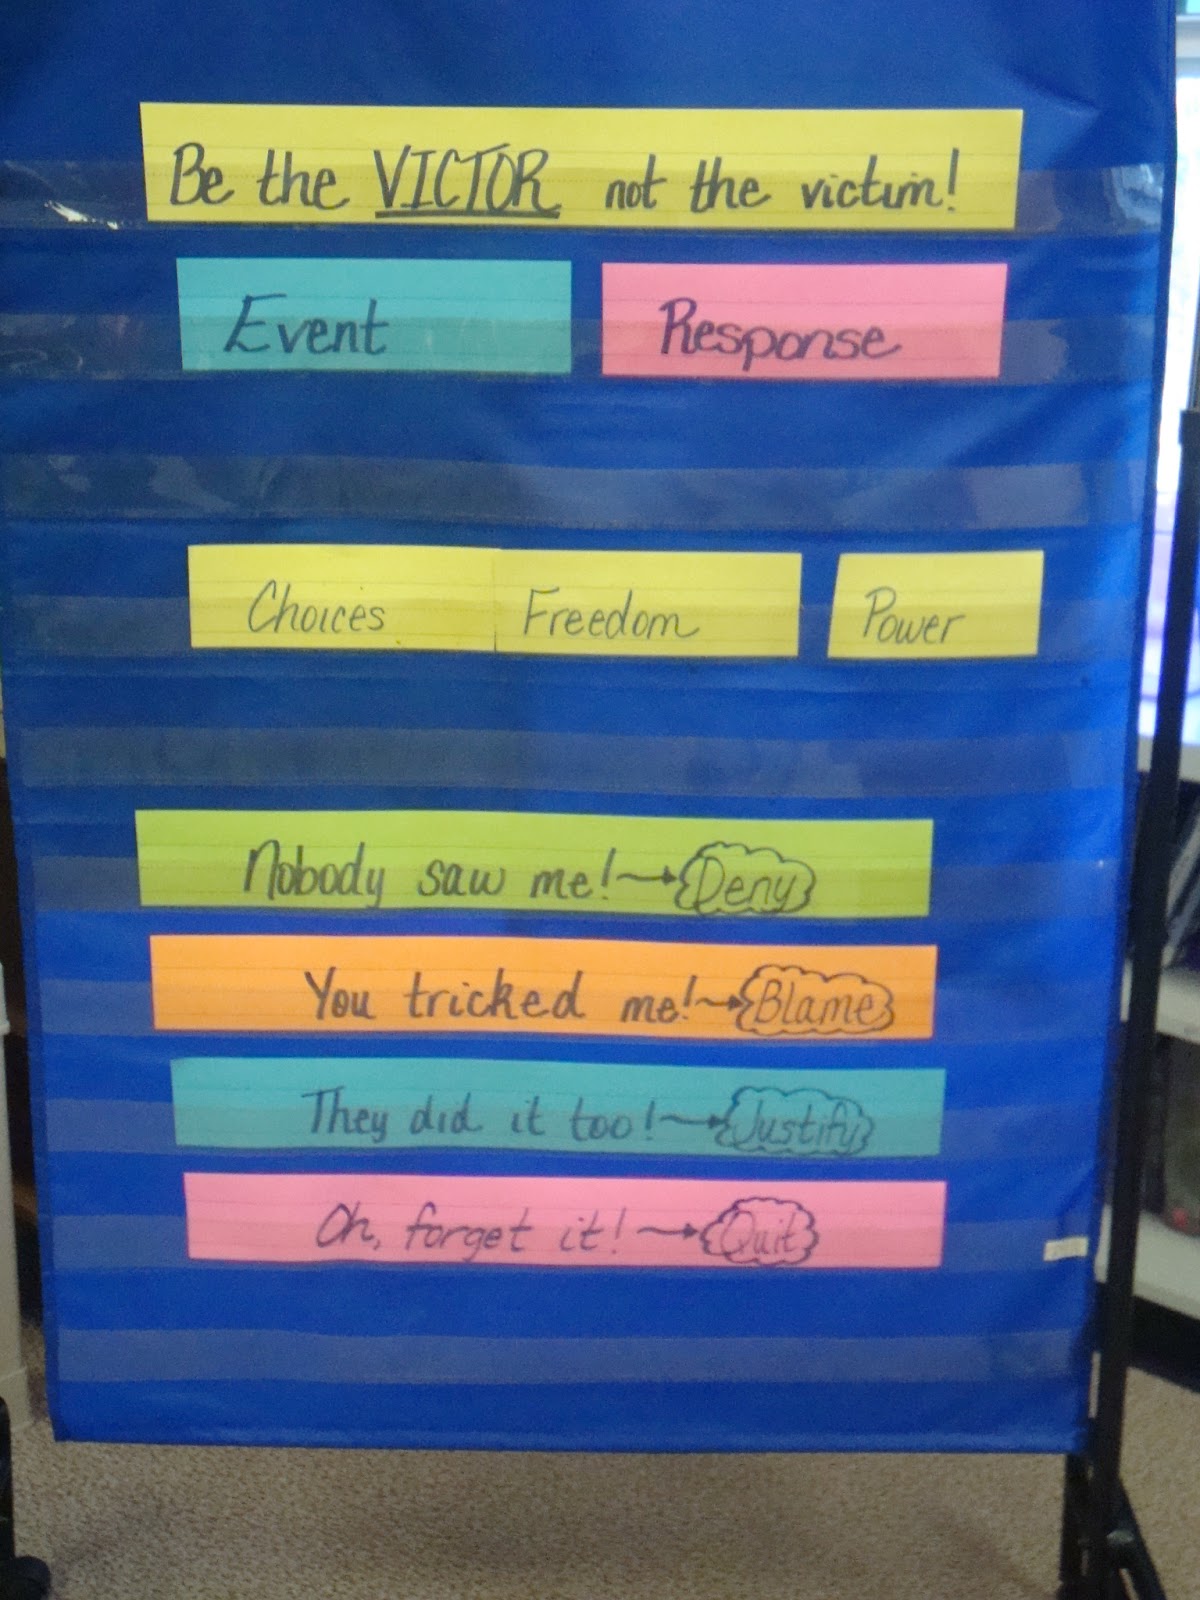 Be the VICTOR not the victim!
Event Response
Choices Freedom Power
Nobody saw me! → Deny
You tricked me! → Blame
They did it too! → Justify
Oh, forget it! → Quit